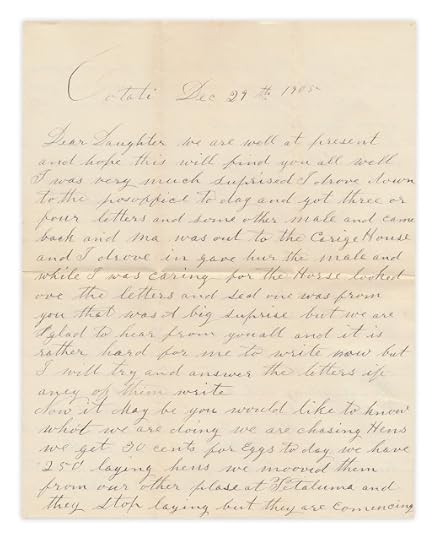 Cotati Dec 29th 1905
Dear Daughter we are well at present
and hope this will find you all well
I was very much suprised I drove down
to the posoppice to day and got three or
four letters and some other male and came
back and ma was out to the Carige House
and I drove in gave hur the male and
while I was caring for the Horse looked
ove the letters and sed one was from
you that was A big suprise but we are
glad to hear from you all and it is
rather hard for me to write now but
I will try and answer the letters if
aney of them write
Now it May be you would like to know
what we are doing we are chasing Hens
we get 30 cents for Eggs to day we have
250 laying hens we mooved them
from our other plase at Petaluma and
they stop laying but they are comencing